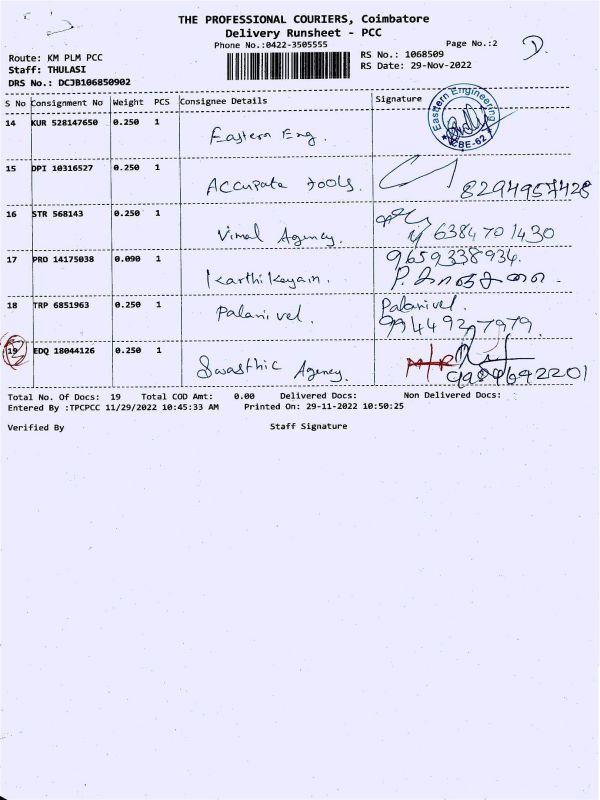 THE PROFESSIONAL COURIERS, Coimbatore
Delivery Runsheet - PCC
Phone No.:0422-3505555
Page No.:2
Route: KM PLM PCC
RS No.: 1068509
Staff: THULASI
RS Date: 29-Nov-2022
DRS No.: DCJB106850902
S No Consignment No Weight PCS Consignee Details Signature
Eastern Engineering
CBE-62
14 KUR 528147650 0.250 1
Eastern Eng.
15 DPI 10316527 0.250 1
Accupate tools. 8294957428
16 STR 568143 0.250 1
Vimal Agency. 6384701430
17 PRO 14175038 0.090 1 9659338934.
Karthikeyain.
18 TRP 6851963 0.250 1 Palanivel.
Palanivel. 9944927979
19 EDQ 18044126 0.250 1
Swasthic Agency.
Total No. Of Docs: 19 Total COD Amt: 0.00 Delivered Docs: Non Delivered Docs:
Entered By :TPCPCC 11/29/2022 10:45:33 AM Printed On: 29-11-2022 10:50:25
Verified By Staff Signature